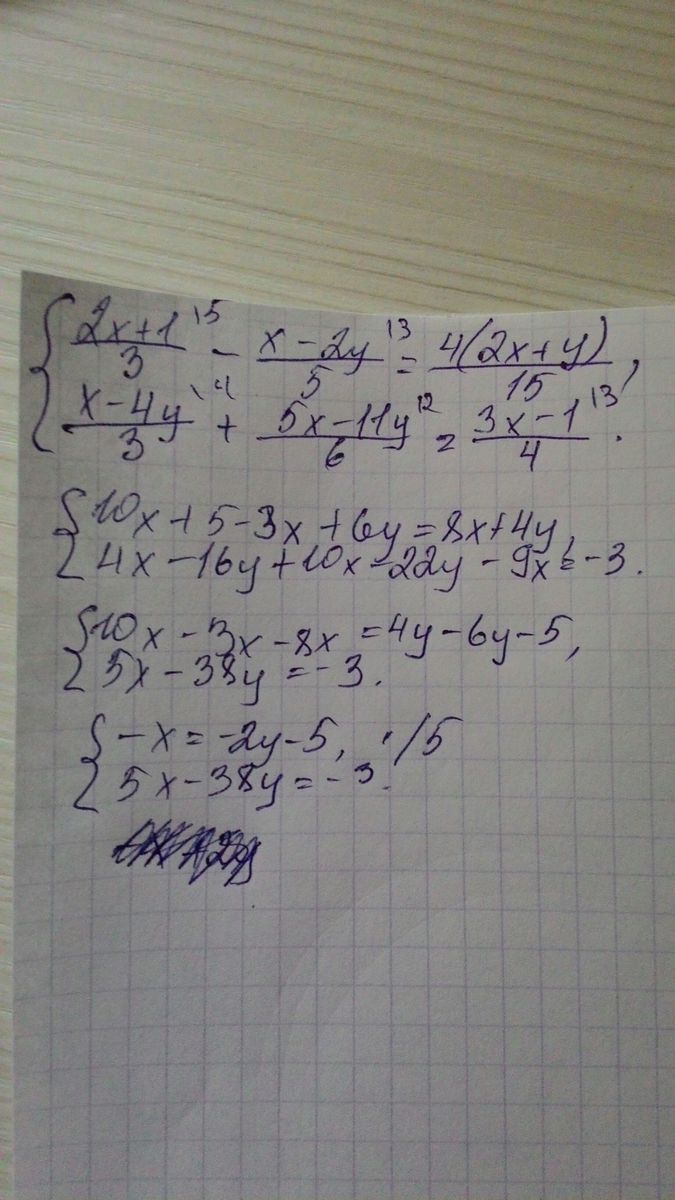 { (2x+1)/3 \5 - (x-2y)/5 \3 = 4(2x+y)/15 ,
(x-4y)/3 \4 + (5x-11y)/6 \2 = (3x-1)/4 \3 .
{ 10x+5-3x+6y=8x+4y,
4x-16y+10x-22y-9x=-3.
{ 10x-3x-8x=4y-6y-5,
5x-38y=-3.
{ -x=-2y-5, ·/5
5x-38y=-3.